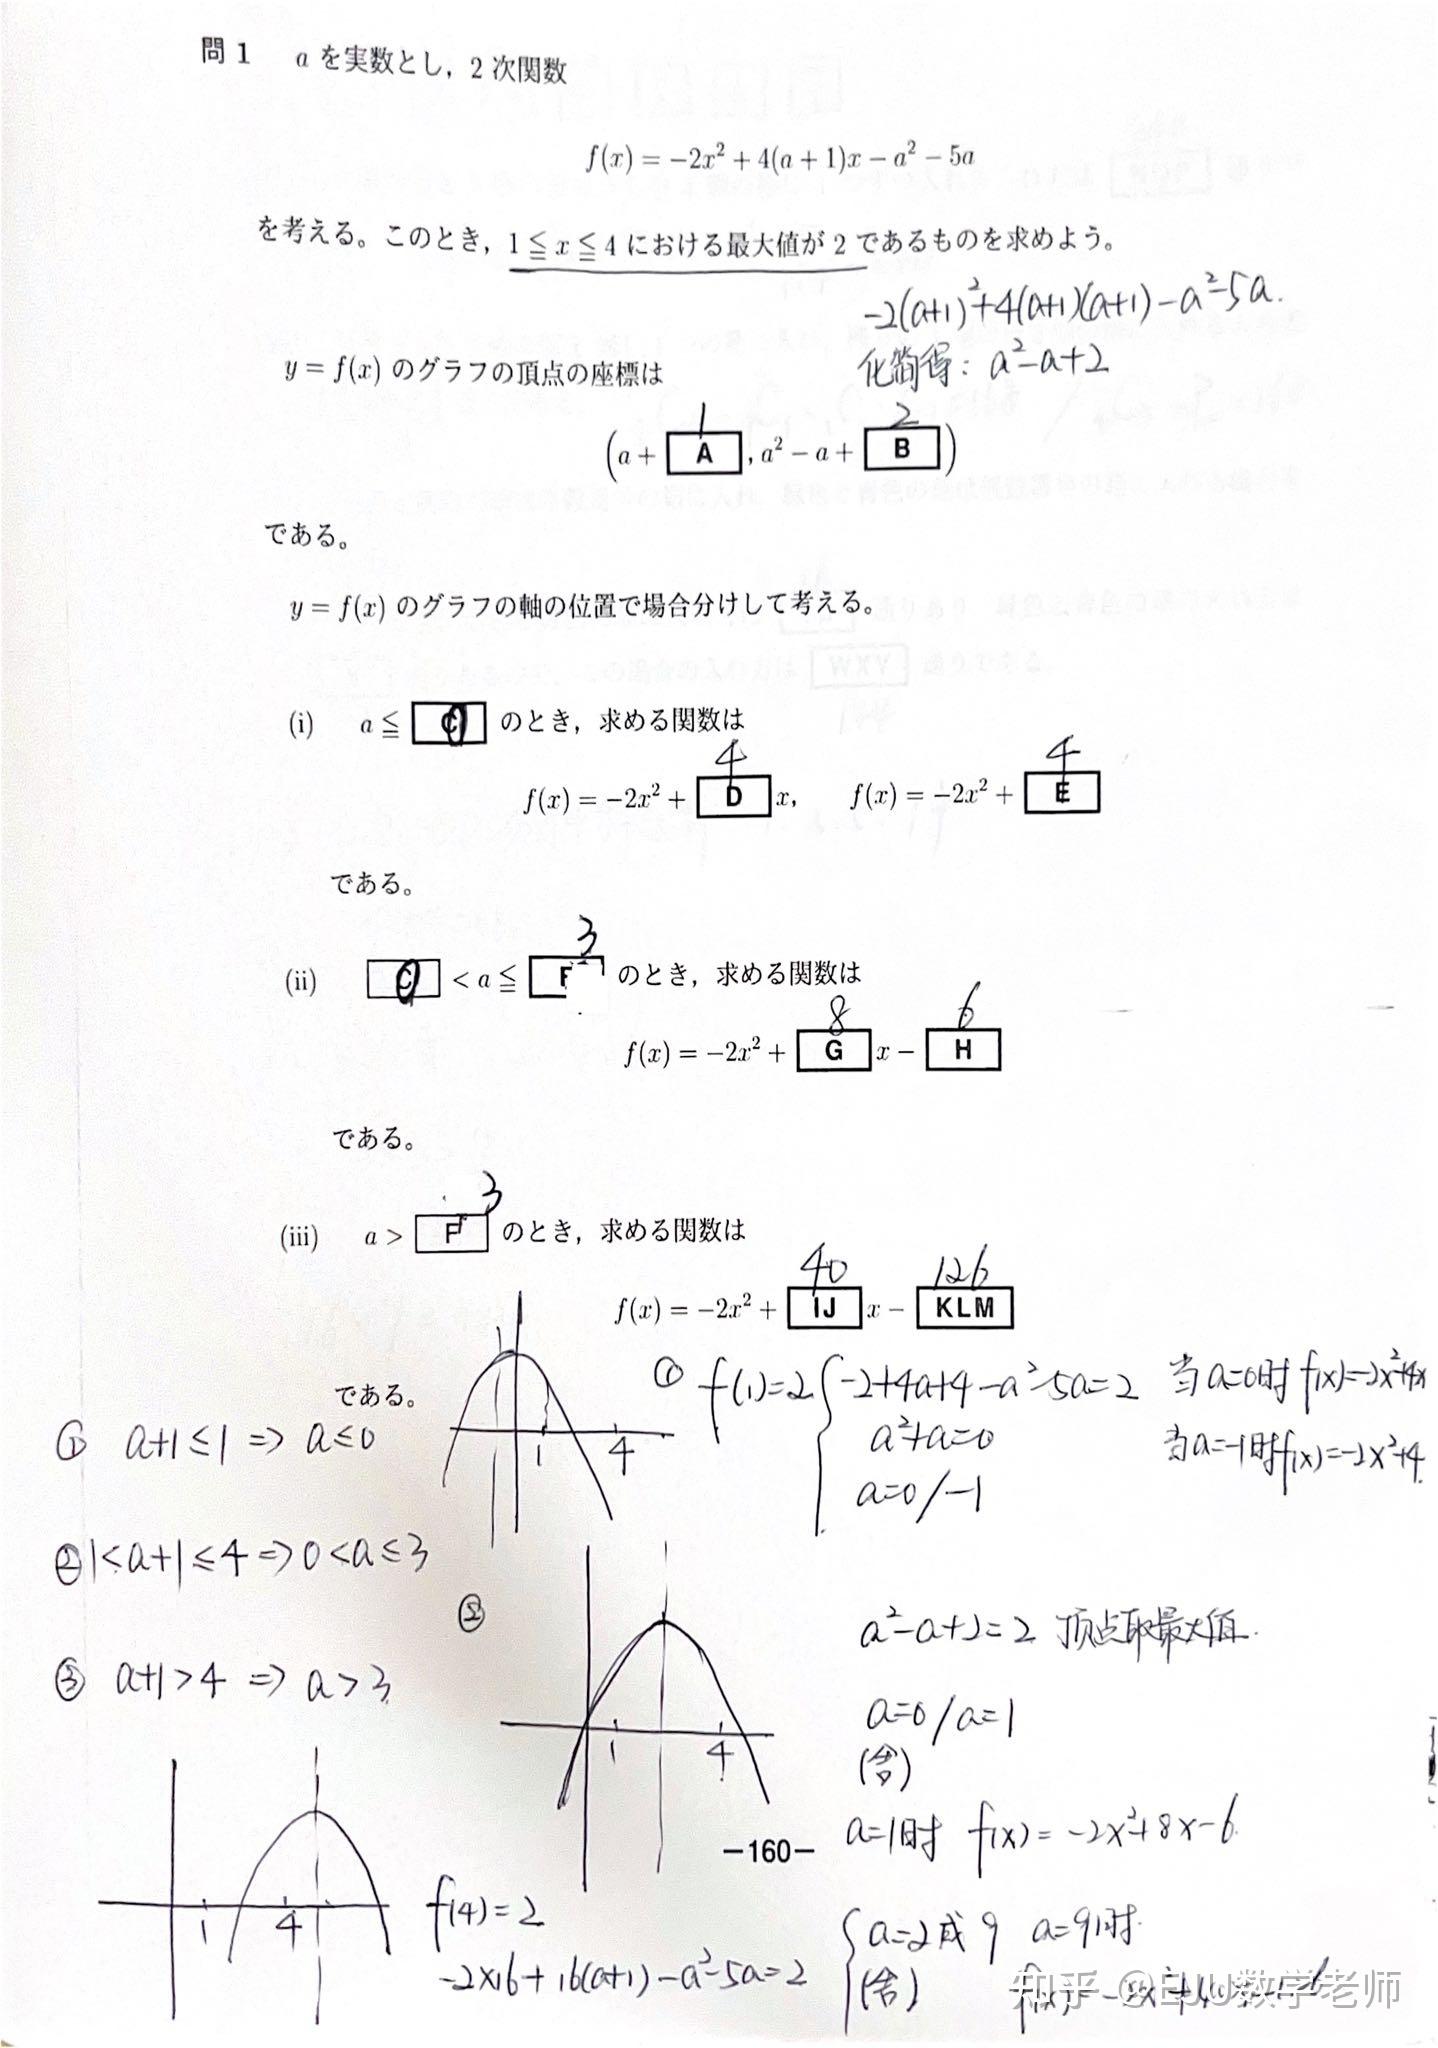 問1 aを実数とし，2次関数
f(x) = −2x² + 4(a + 1)x − a² − 5a
を考える。このとき，1 ≦ x ≦ 4 における最大値が 2 であるものを求めよう。
-2(a+1)²+4(a+1)(a+1)-a²-5a.
化简得： a²-a+2
y = f(x) のグラフの頂点の座標は
1 2
(a + A , a² − a + B )
である。
y = f(x) のグラフの軸の位置で場合分けして考える。
WXY 通りである
(i) a ≦ C 0 のとき，求める関数は
4 4
f(x) = −2x² + D x, f(x) = −2x² + E
である。
3
(ii) C 0 < a ≦ F のとき，求める関数は
8 6
f(x) = −2x² + G x − H
である。
3
(iii) a > F のとき，求める関数は
40 126
f(x) = −2x² + IJ x − KLM
である。
① f(1)=2 { -2+4a+4-a²-5a=2 当a=0时 f(x)=-2x²+4x
a²+a=0
a=0/-1
当a=-1时f(x)=-2x²+4.
① a+1≤1 => a≤0
1 4
② 1<a+1≤4 => 0<a≤3
③ a+1>4 => a>3
②
1 4
a²-a+2=2 顶点取最大值.
a=0/a=1
(舍)
a=1时 f(x)=-2x²+8x-6.
—160—
1 4
f(4)=2
-2×16+16(a+1)-a²-5a=2
{ a=2或9 a=9时.
(舍)
知乎 @EJU数学老师